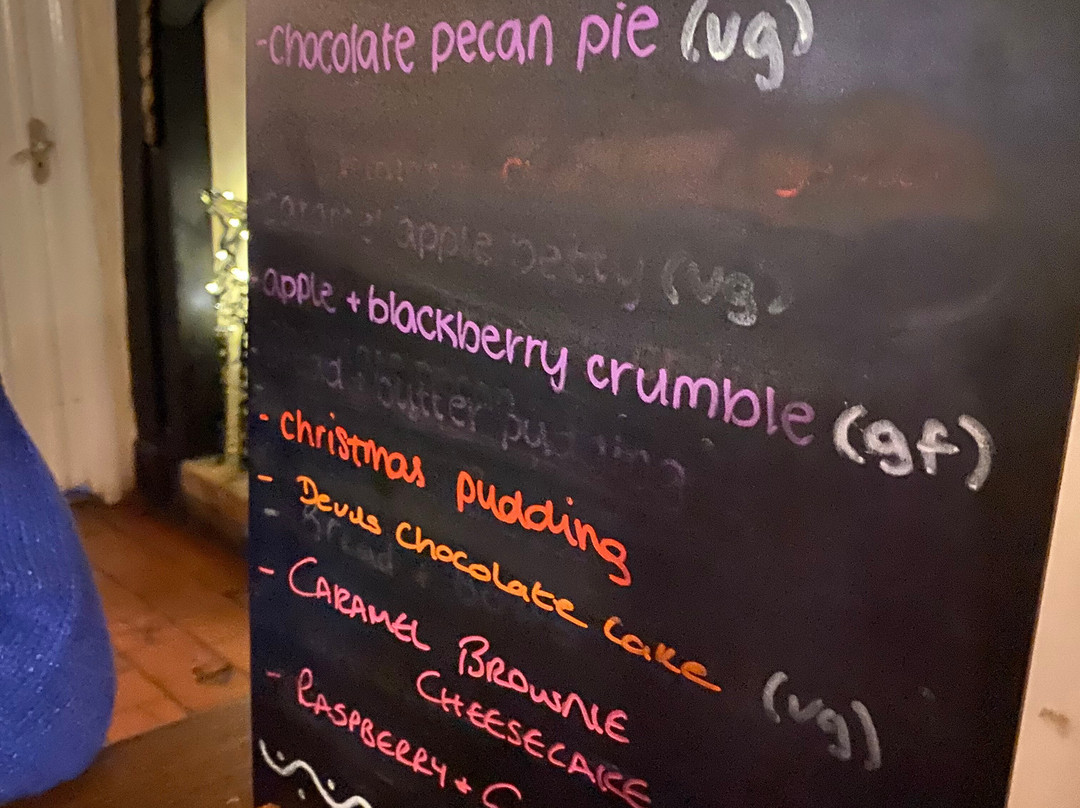 -chocolate pecan pie (vg)
apple betty (vg)
-apple + blackberry crumble (gf)
butter pudding
- christmas pudding
- Devils Chocolate Cake
- CARAMEL BROWNIE
CHEESECAKE (vg)
- RASPBERRY +